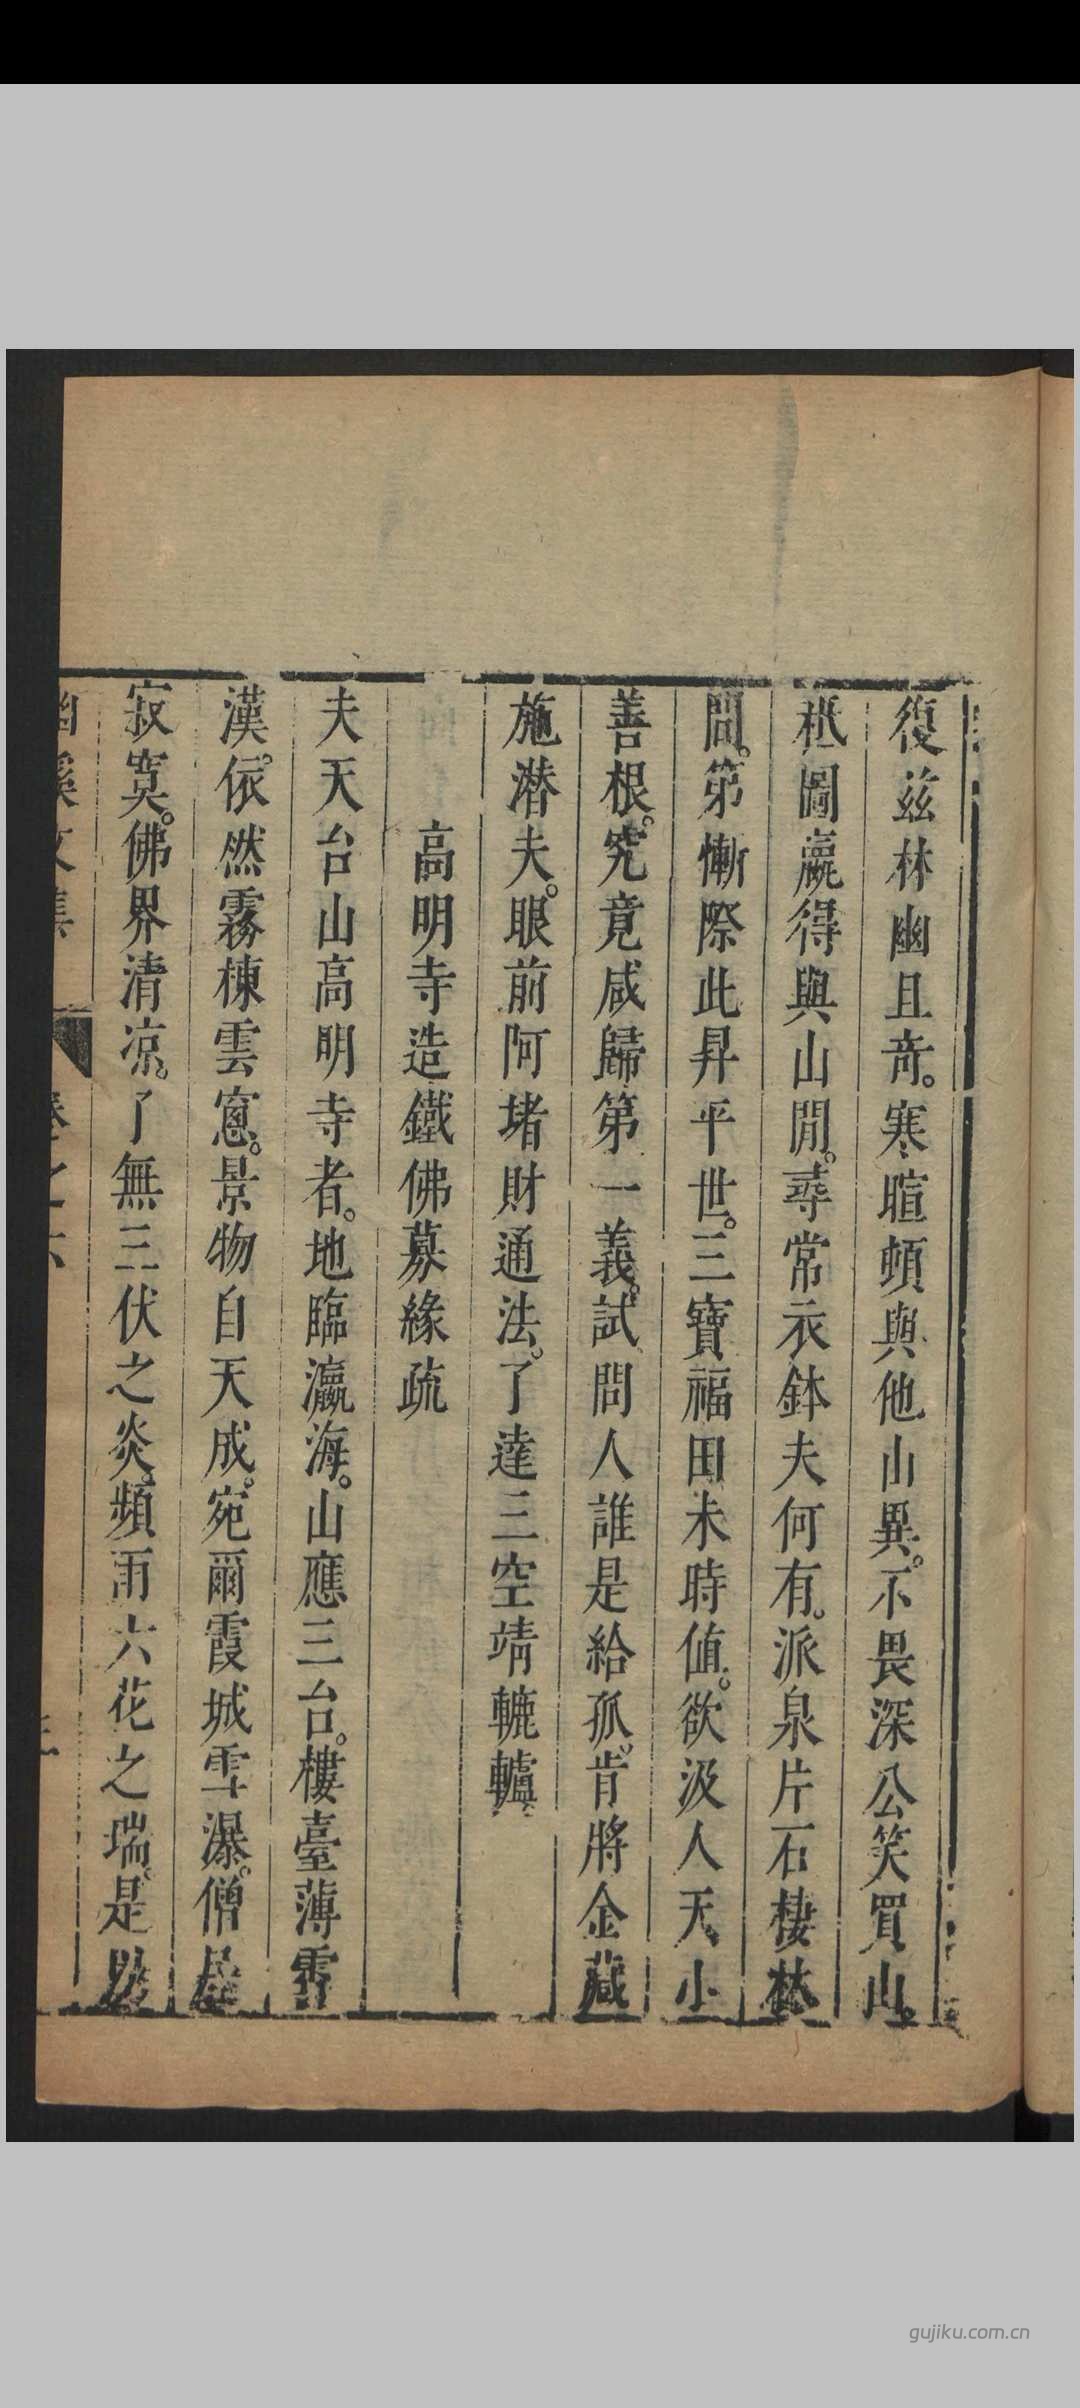 復兹林幽且奇。寒暄頓與他山異。不畏深公笑買山。
秪圖贏得與山閒。尋常衣鉢夫何有。派泉片石棲林
間。第慚際此昇平世。三寶福田未時值。欲汲人天小
善根。究竟咸歸第一義。試問人誰是給孤。肯將金藏
施潜夫。眼前阿堵財通法。了達三空靖轆轤
高明寺造鐵佛募緣疏
夫天台山高明寺者。地臨瀛海。山應三台。樓臺薄霄
漢。依然霧棟雲窻。景物自天成。宛爾霞城雪瀑。僧居
寂寞。佛界清凉。了無三伏之炎。頻雨六花之瑞。是以
幽溪文集 卷之六
gujiku.com.cn